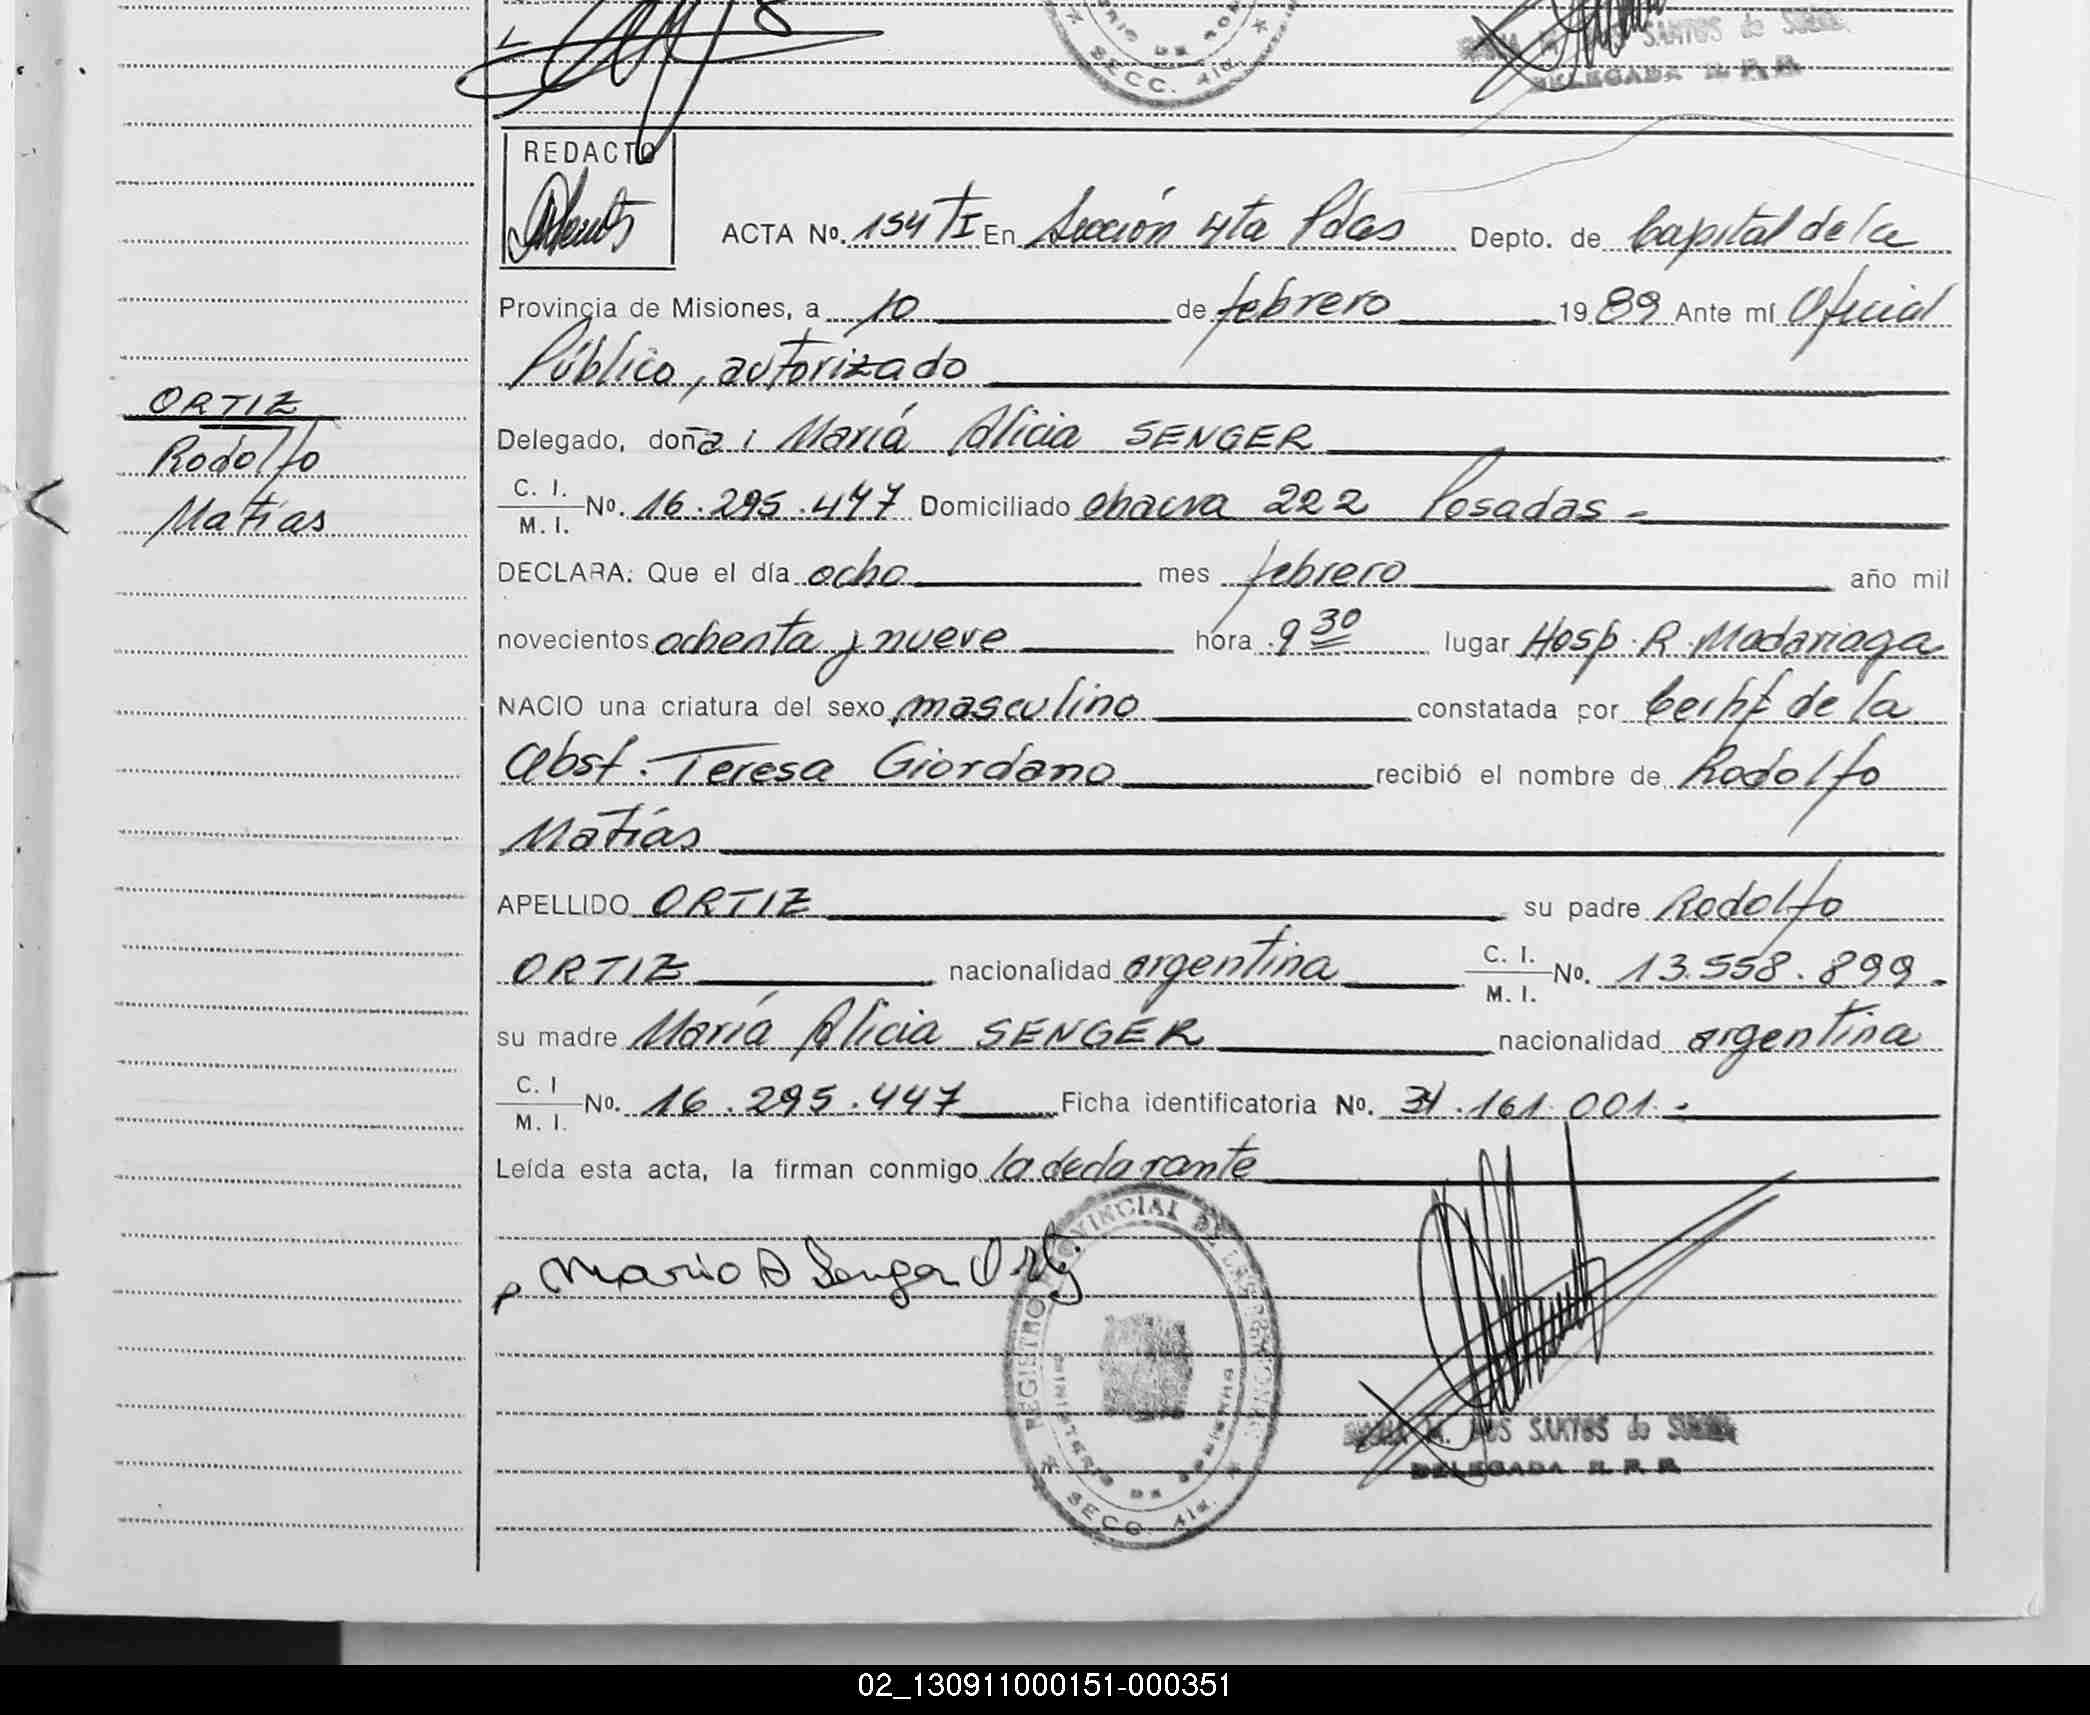 SECC. 4ta.
SANTOS de
DELEGADA R. P. P.
REDACTO
ACTA No. 154 TI En Sección 4ta Pdas Depto. de Capital de la
Provincia de Misiones, a 10 de febrero 1989 Ante mí Oficial
Público, autorizado
ORTIZ
Rodolfo
Matías
Delegado, doña : María Alicia SENGER
C. I.
M. I.
No. 16.295.447 Domiciliado chacra 222 Posadas -
DECLARA: Que el día ocho mes febrero año mil
novecientos ochenta y nueve hora 9 30 lugar Hosp. R. Madariaga
NACIO una criatura del sexo masculino constatada por Certif de la
Obst. Teresa Giordano recibió el nombre de Rodolfo
Matías
APELLIDO ORTIZ su padre Rodolfo
ORTIZ nacionalidad argentina C. I. M. I. No. 13.558.899.-
su madre María Alicia SENGER nacionalidad argentina
C. I M. I. No. 16.295.447 Ficha identificatoria No. 34.161.001.-
Leída esta acta, la firman conmigo la declarante
Maria A Senger
REGISTRO PROVINCIAL DE LAS PERSONAS
MINISTERIO DE GOBIERNO
SECC. 4ta.
DOS SANTOS de
DELEGADA R. P. P.
02_130911000151-000351